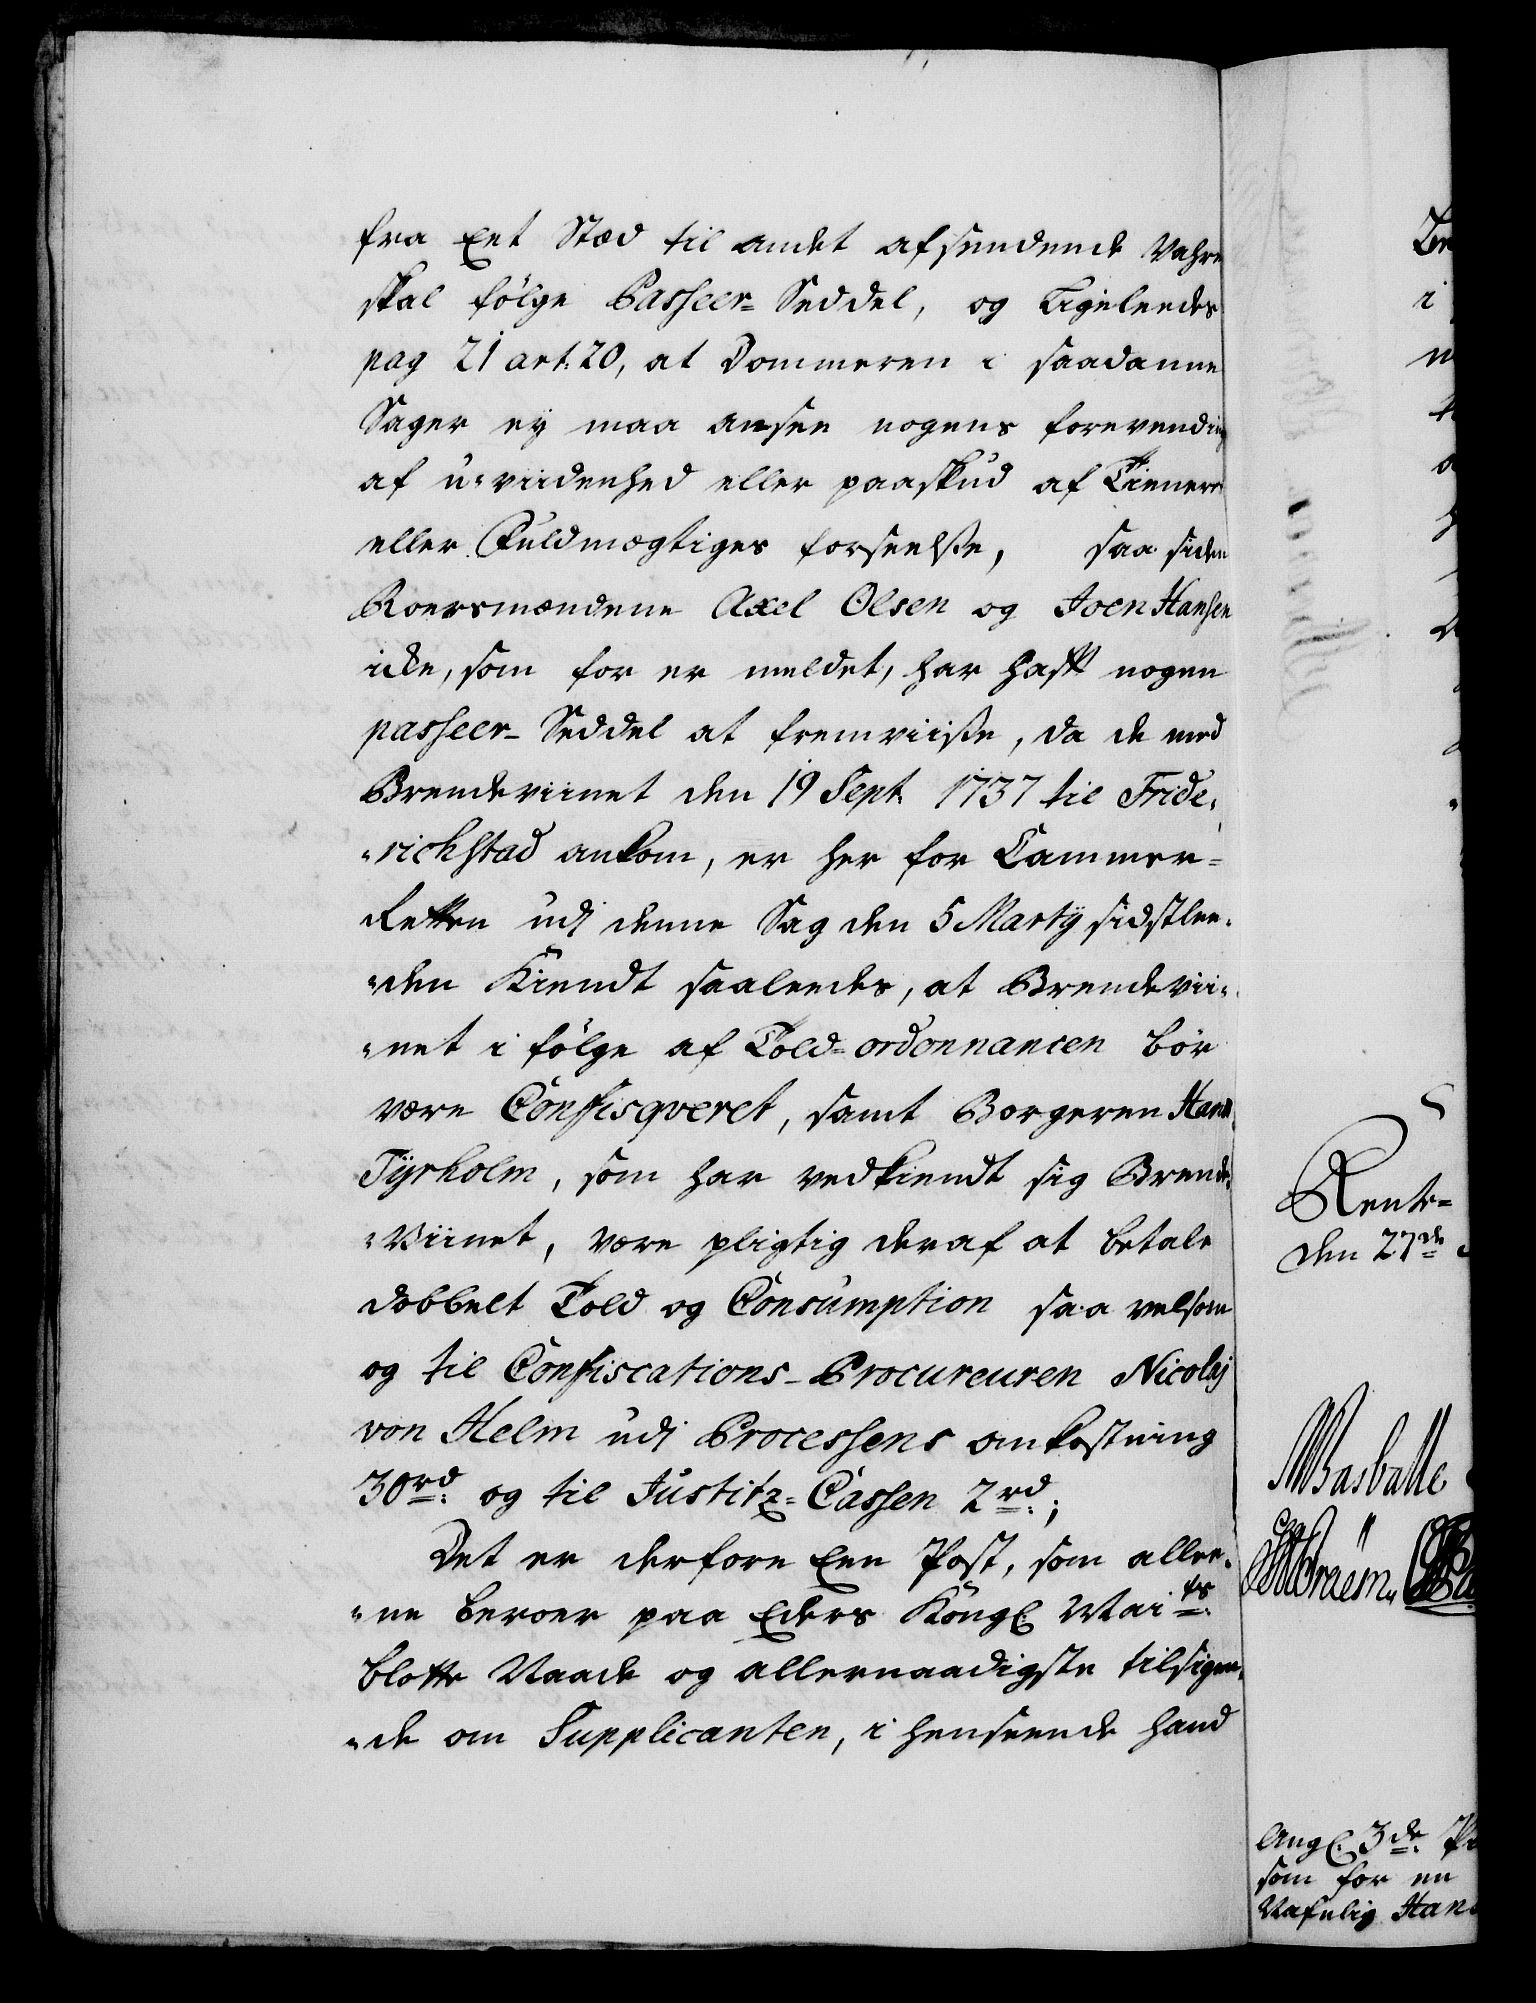 fra Eet Stæd til andet afsendende Vahre
skal følge Passeer= Seddel, og ligeleedes
pag 21 art: 20, at Dommeren i saadanne
Sager ey maa ansee nogens forevending
af u-viidenhed eller paaskud af Tienere
eller Fuldmægtiges forseelße, saa siden
Roersmændene Axel Olsen og Joen Hansen
icke, som for er meldet, har hafft nogen
passeer- Seddel at fremviiße, da de med
Brendeviinet den 19 Sept. 1737 til Fride-
-richstad ankom, er her for Cammer=
Retten udj denne Sag den 5 Martÿ sidstlee-
-den Kiendt saaleedes, at Brendevii-
-net i følge af Told=ordonnancen bør
være Confisqveret, samt Borgeren Hans
Tÿrholm, som har vedkiendt sig Brende-
-Viinet, være pligtig deraf at betale
dobbelt Told og Consumption saavelsom
og til Confiscations-Procureuren Nicolaj
von Helm udj Processens omkostning
30 rd. og til Justitz=Cassen 2 rd.;
Det er derfore Een Post, som allee-
-ne beroer paa Eders Kongl. Maits.
blotte Naade og allernaadigste tilsigen-
-de om Supplicanten, i henseende hand
i
Rente=
den 27de
Angl. 3de
som for en
Nafnlig Hans